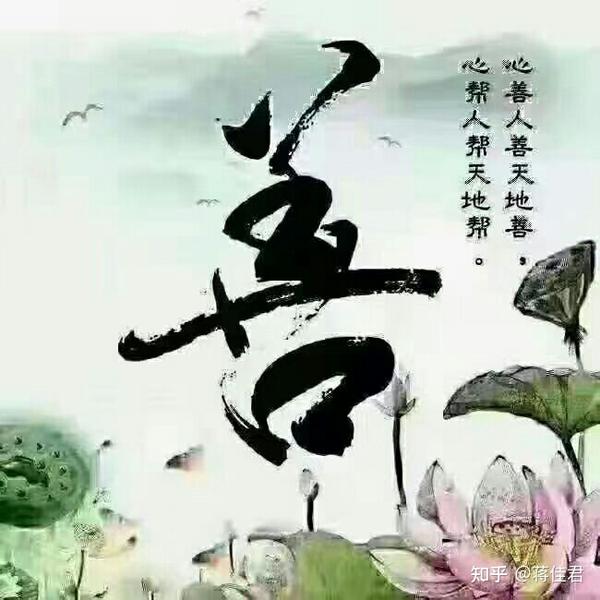 善
心善人善天地善，
心帮人帮天地帮。
知乎 @蒋佳君